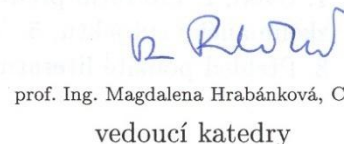 prof. Ing. Magdalena Hrabánková, C
vedoucí katedry